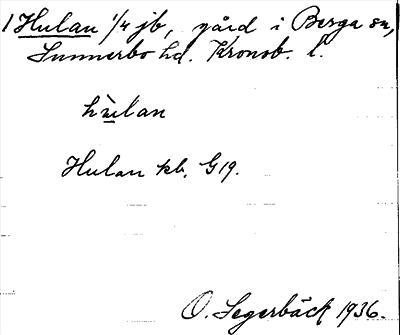 1 Hulan 1/4 jb, gård i Berga sn,
Sunnerbo hd. Kronob. l.
hùlan
Hulan kb. G19.
O. Segerbäck 1936.